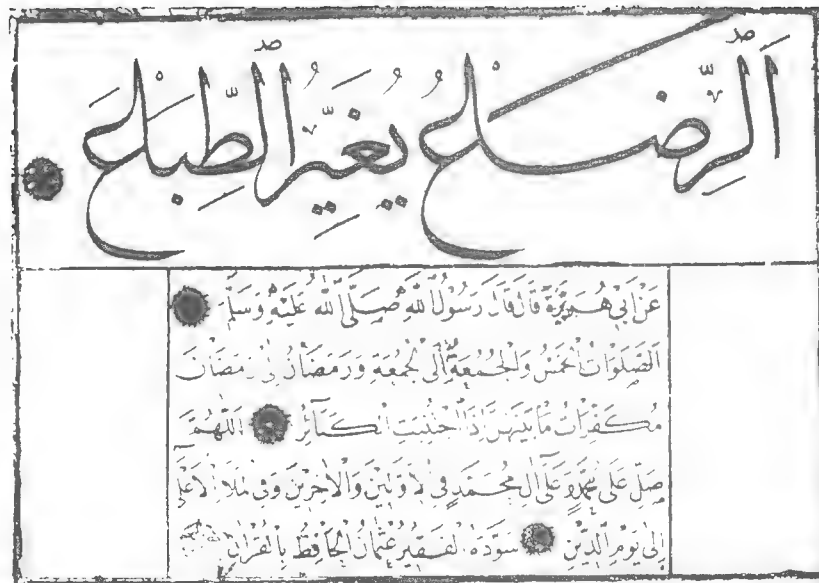 اَلرِّضَاعُ يُغَيِّرُ الطِّبَاعَ
عَنْ اَبِي هُرَيْرَةَ قَالَ قَالَ رَسُولُ اللّٰهِ صَلَّى اللّٰهُ عَلَيْهِ وَسَلَّمَ
اَلصَّلَوَاتُ الْخَمْسُ وَالْجُمُعَةُ اِلَى الْجُمُعَةِ وَرَمَضَانُ اِلَى رَمَضَانَ
مُكَفِّرَاتُ مَا بَيْنَهُنَّ اِذَا اجْتُنِبَتِ الْكَبَآئِرُ اَللّٰهُمَّ
صَلِّ عَلَى مُحَمَّدٍ وَعَلَى آلِ مُحَمَّدٍ فِي الْاَوَّلِينَ وَالْاٰخِرِينَ وَفِي الْمَلَاِ الْاَعْلَى
اِلَى يَوْمِ الدِّينِ سَوَّدَهُ الْفَقِيرُ عُثْمَانُ الْحَافِظُ بِالْقُرْاٰنِ